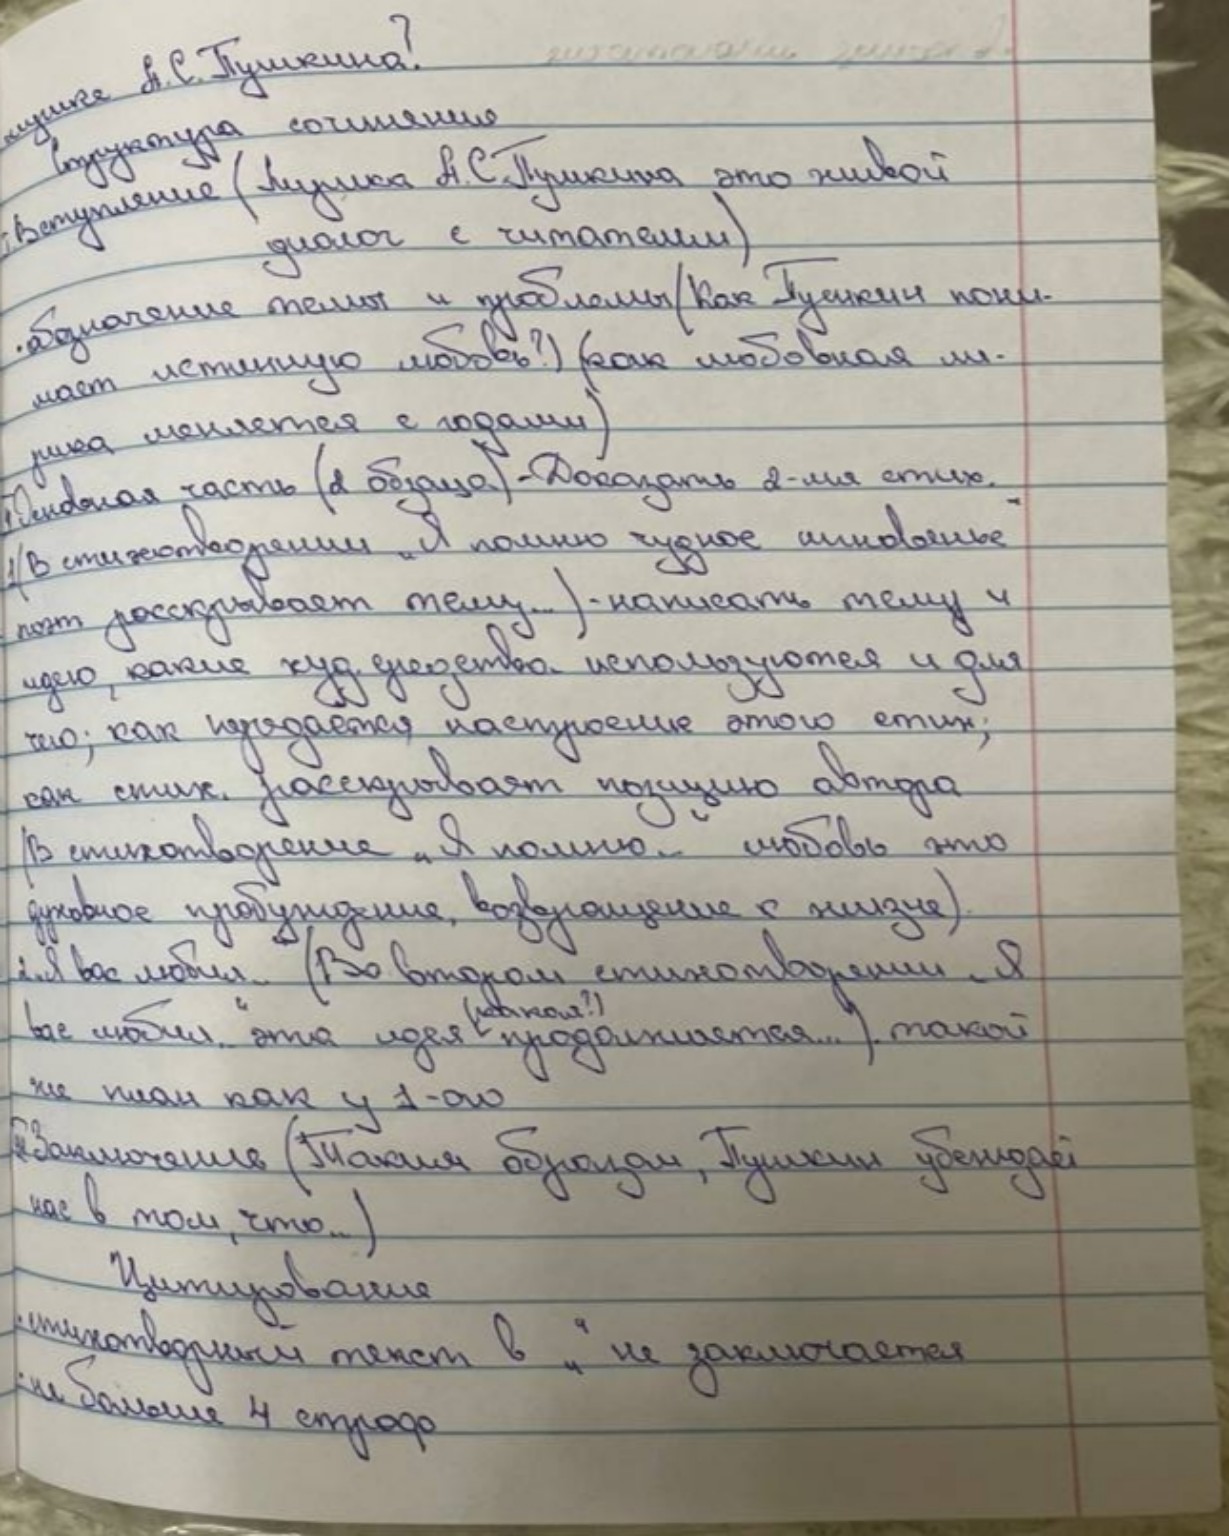 лирике А.С.Пушкина?
Структура сочинения
Вступление (Лирика А.С.Пушкина это живой
диалог с читателем)
·обозначение темы и проблемы(Как Пушкин пони-
мает истинную любовь?) (как любовная ли-
рика меняется с годами)
Основная часть (2 абзаца)-Доказать 2-мя стих.
1(В стихотворении „Я помню чудное мновенье"
поэт раскрывает тему...)-написать тему и
идею, какие худ.средства используются и для
чего; как передается настроение этого стих;
как стих. раскрывает позицию автора
(В стихотворение „Я помню.." любовь это
духовное пробуждение, возвращение к жизне).
2.Я вас любил.. (Во втором стихотворении „Я
вас любил.." эта идея (какая?) продолжается...). такой
же план как у 1-ого
Заключение (Таким образом, Пушкин убеждает
нас в том, что...)
Цитирование
·стихотворный текст в „ " не заключается
·не больше 4 строф